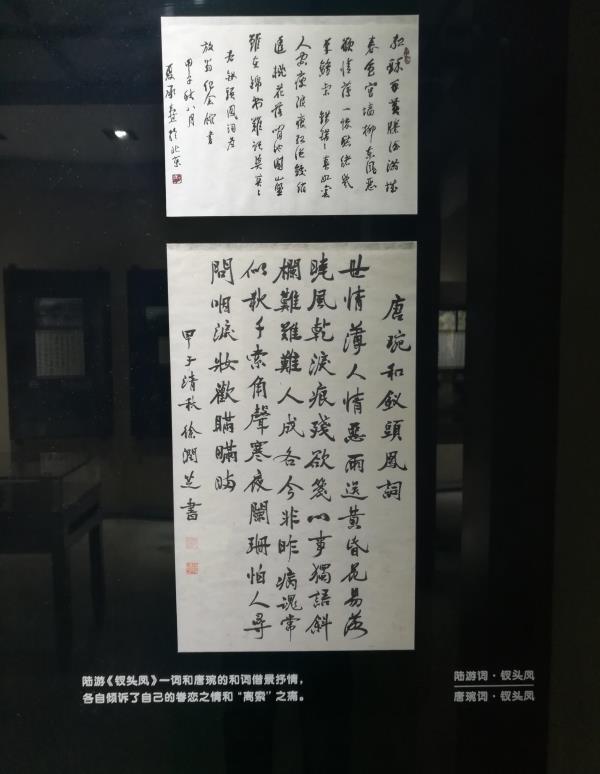 紅酥手黃縢酒滿城
春色宮牆柳東風惡
歡情薄一懷愁緒幾
年離索錯錯〻春如舊
人空瘦淚痕紅浥鮫綃
透桃花落閒池閣山盟
雖在錦書難託莫莫〻
頭鳳詞
放翁紀念館書
甲子秋八月
夏承燾於北京
唐琬和釵頭鳳詞
世情薄人情惡雨送黃昏花易落
曉風乾淚痕殘欲箋心事獨語斜
欄難難難人成各今非昨病魂常
似秋千索角聲寒夜闌珊怕人尋
問咽淚妝歡瞞瞞瞞
甲子清秋徐潤芝書
陆游《钗头凤》一词和唐琬的和词借景抒情，
各自倾诉了自己的眷恋之情和“离索”之痛。
陆游词·钗头凤
唐琬词·钗头凤